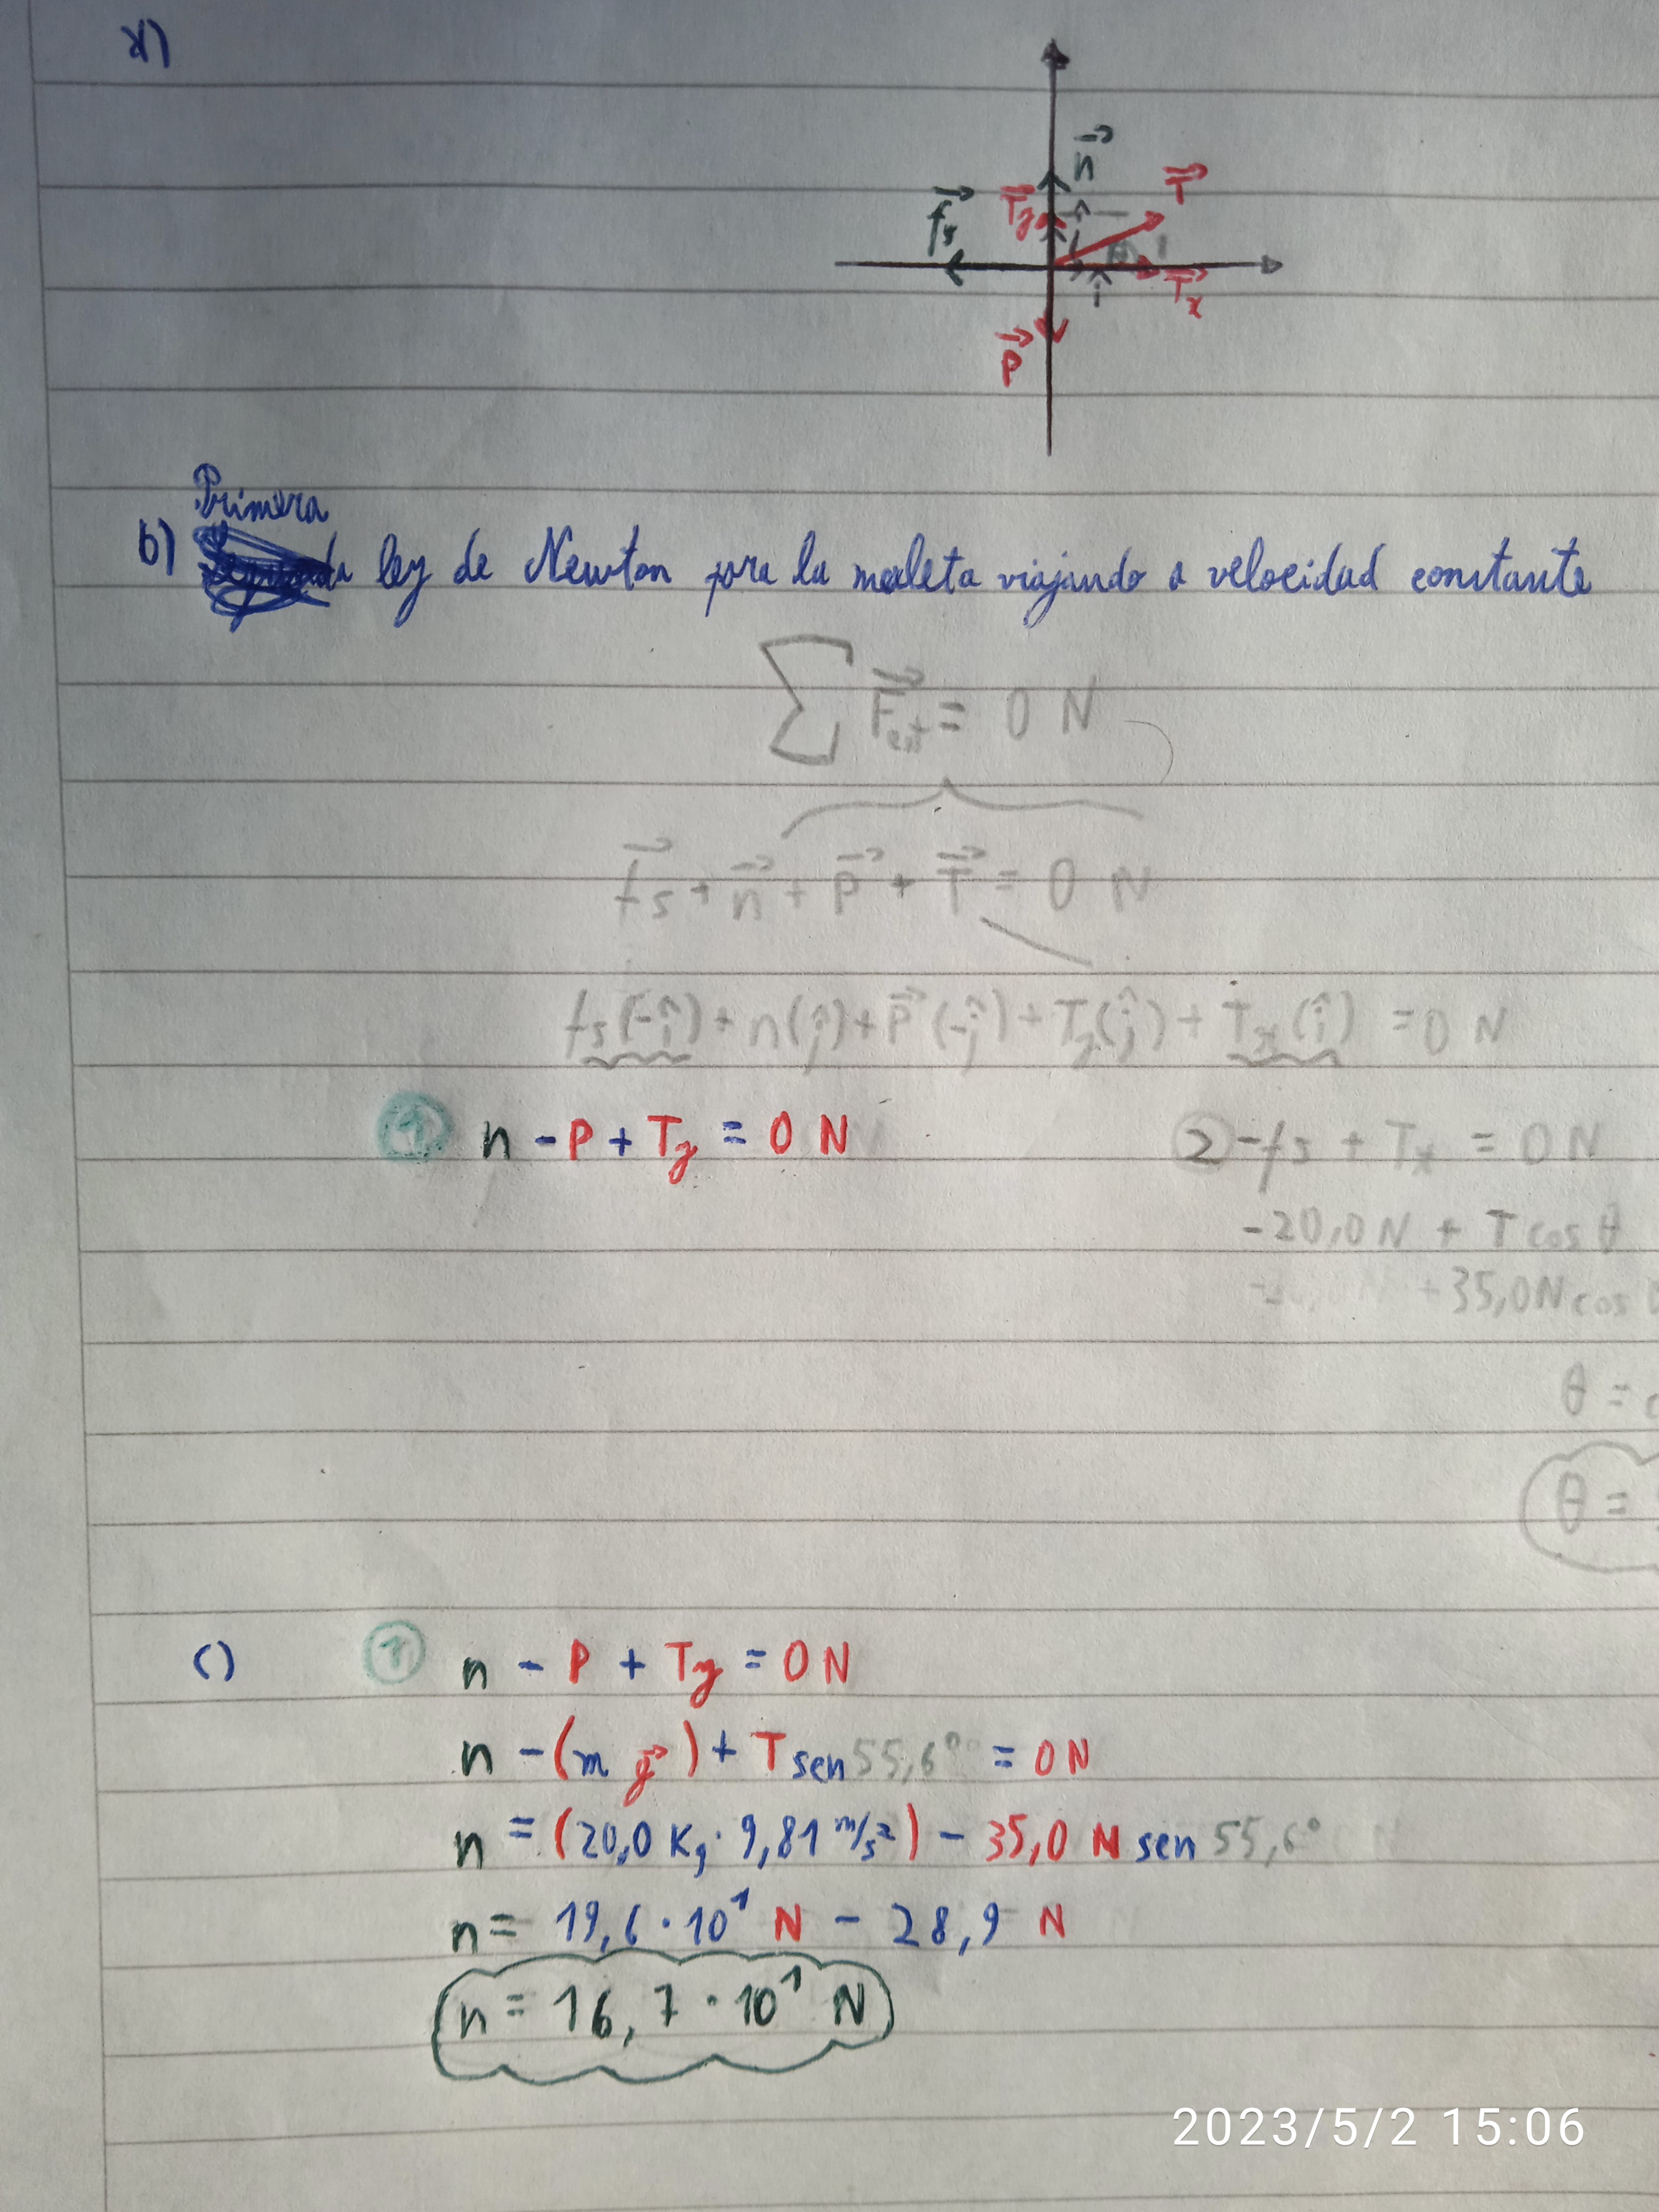 a)
n⃗
T⃗y
ĵ
T⃗
f⃗s
θ
î
T⃗x
P⃗
Primera
b) ley de Newton para la maleta viajando a velocidad constante
∑ F⃗ext = 0 N
f⃗s + n⃗ + P⃗ + T⃗ = 0 N
fs(-î) + n(ĵ) + P⃗(-ĵ) + Ty(ĵ) + Tx(î) = 0 N
① n - P + Ty = 0 N
② -fs + Tx = 0 N
-20,0 N + T cos θ
+ 35,0 N cos
θ =
θ =
c) ① n - P + Ty = 0 N
n - (m g⃗) + T sen 55,6° = 0 N
n = (20,0 Kg · 9,81 m/s²) - 35,0 N sen 55,6°
n = 19,6 · 10¹ N - 28,9 N
n = 16,7 · 10¹ N
2023/5/2 15:06